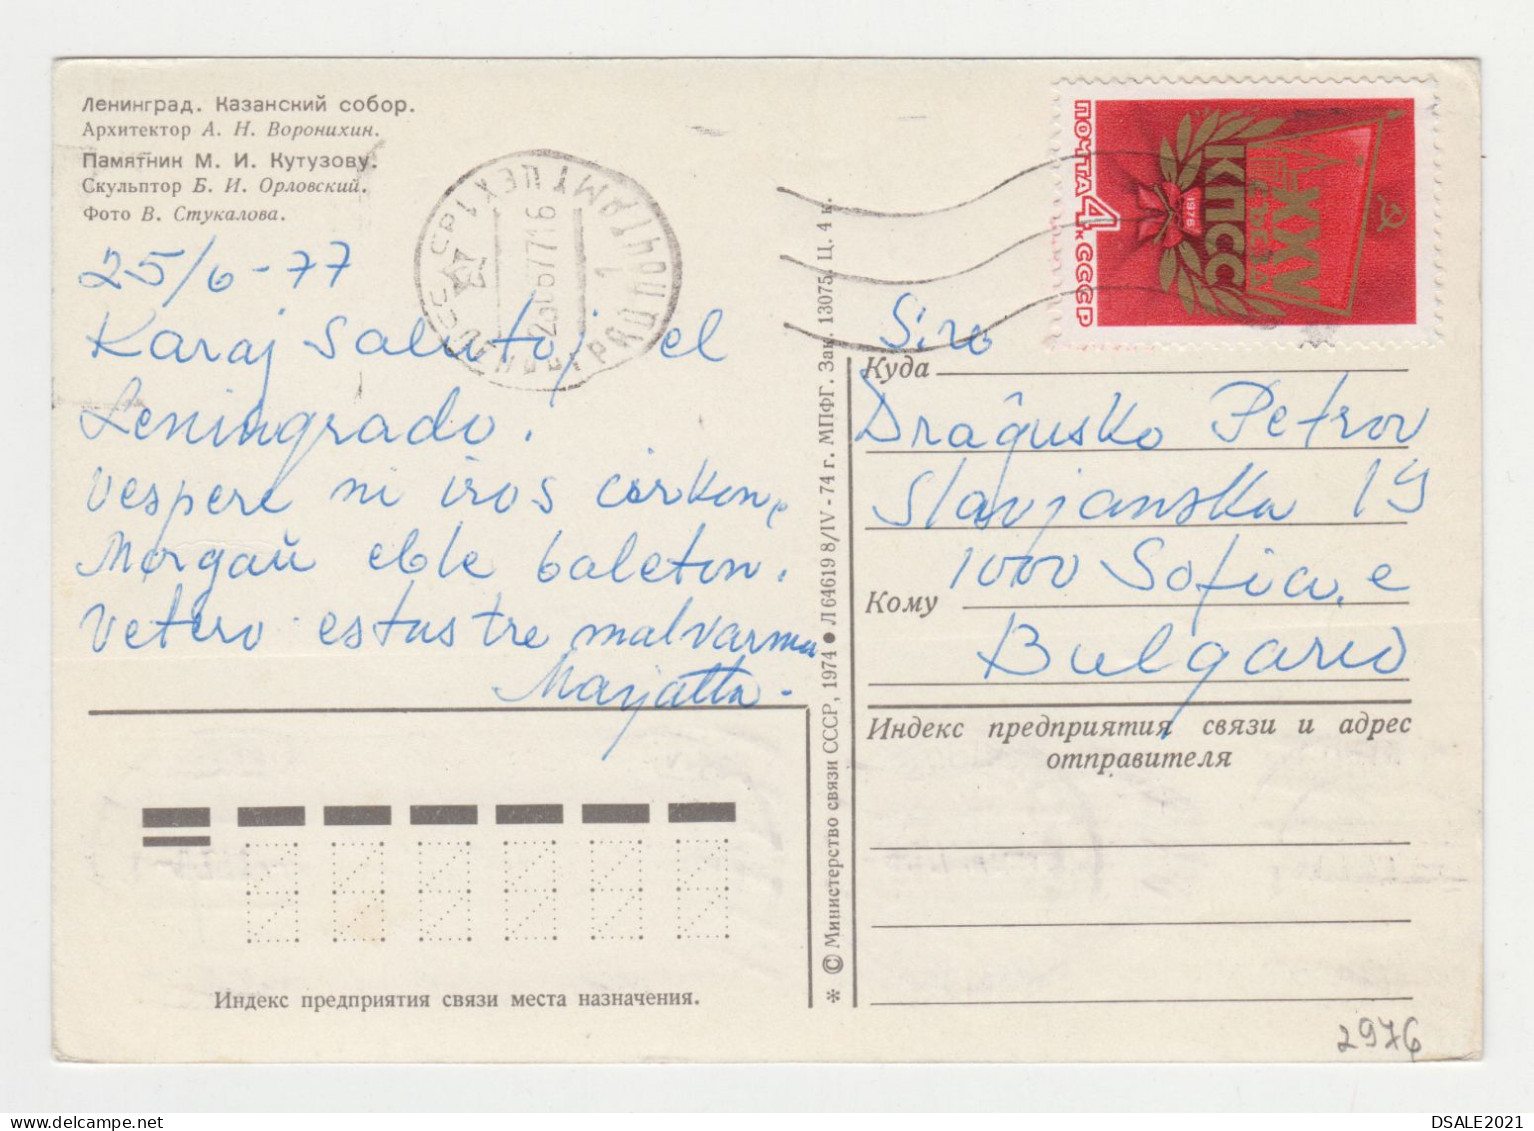 Ленинград. Казанский собор.
Архитектор А. Н. Воронихин.
Памятник М. И. Кутузову.
Скульптор Б. И. Орловский.
Фото В. Стукалова.
25/6-77
Karaj Salutoj el
Leningrado.
Vespere ni iros cirkon,
Morgaŭ eble baleton.
Vetero estas tre malvarma
Marjatta.
Индекс предприятия связи места назначения.
* © Министерство связи СССР, 1974 ● Л 64619 8/IV-74 г. МПФГ. Зак. 13075. Ц. 4 к.
ПОЧТА 4к СССР
XXV
СЪЕЗД
КПСС
1976
Siro
Куда
Draĝusko Petrov
Slavjanska 19
1000 Sofia, e
Кому
Bulgario
Индекс предприятия связи и адрес
отправителя
2976
DSALE2021